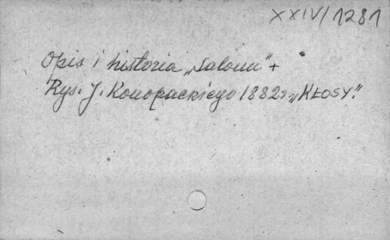 XXIV/1281
Opis i historia „salonu" +
Rys. J. Konopackiego 1882 r „KŁOSY."